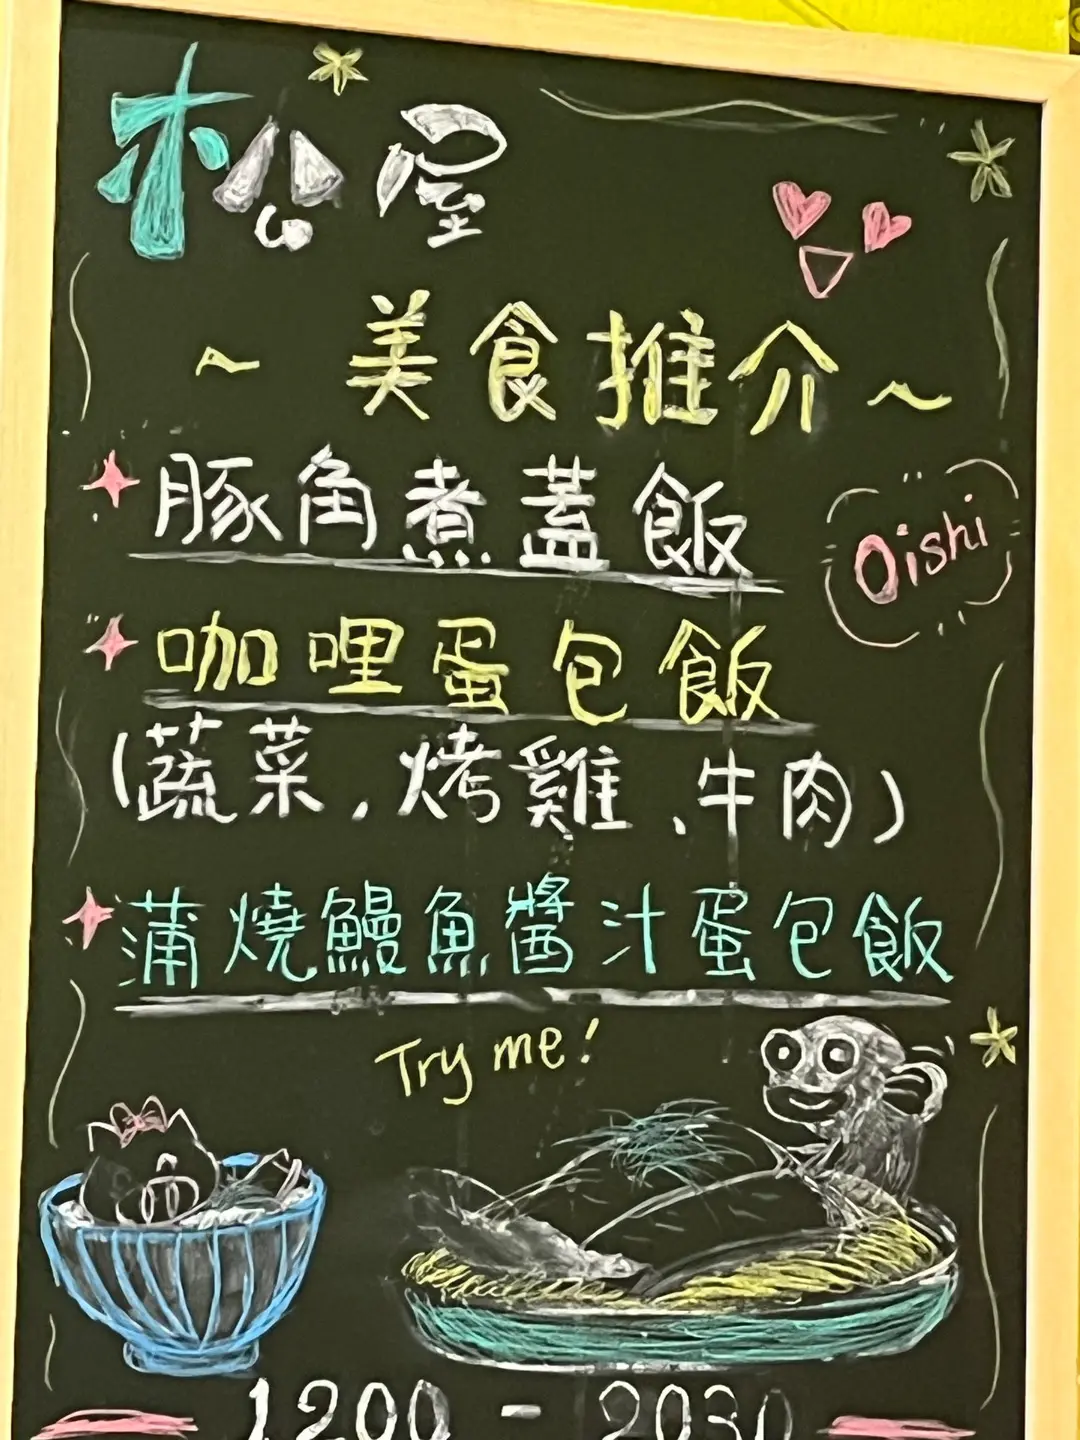 松屋
~ 美食推介 ~
豚角煮蓋飯
Oishi
咖哩蛋包飯
(蔬菜,烤雞、牛肉)
蒲燒鰻魚醬汁蛋包飯
Try me!
1200 - 2030